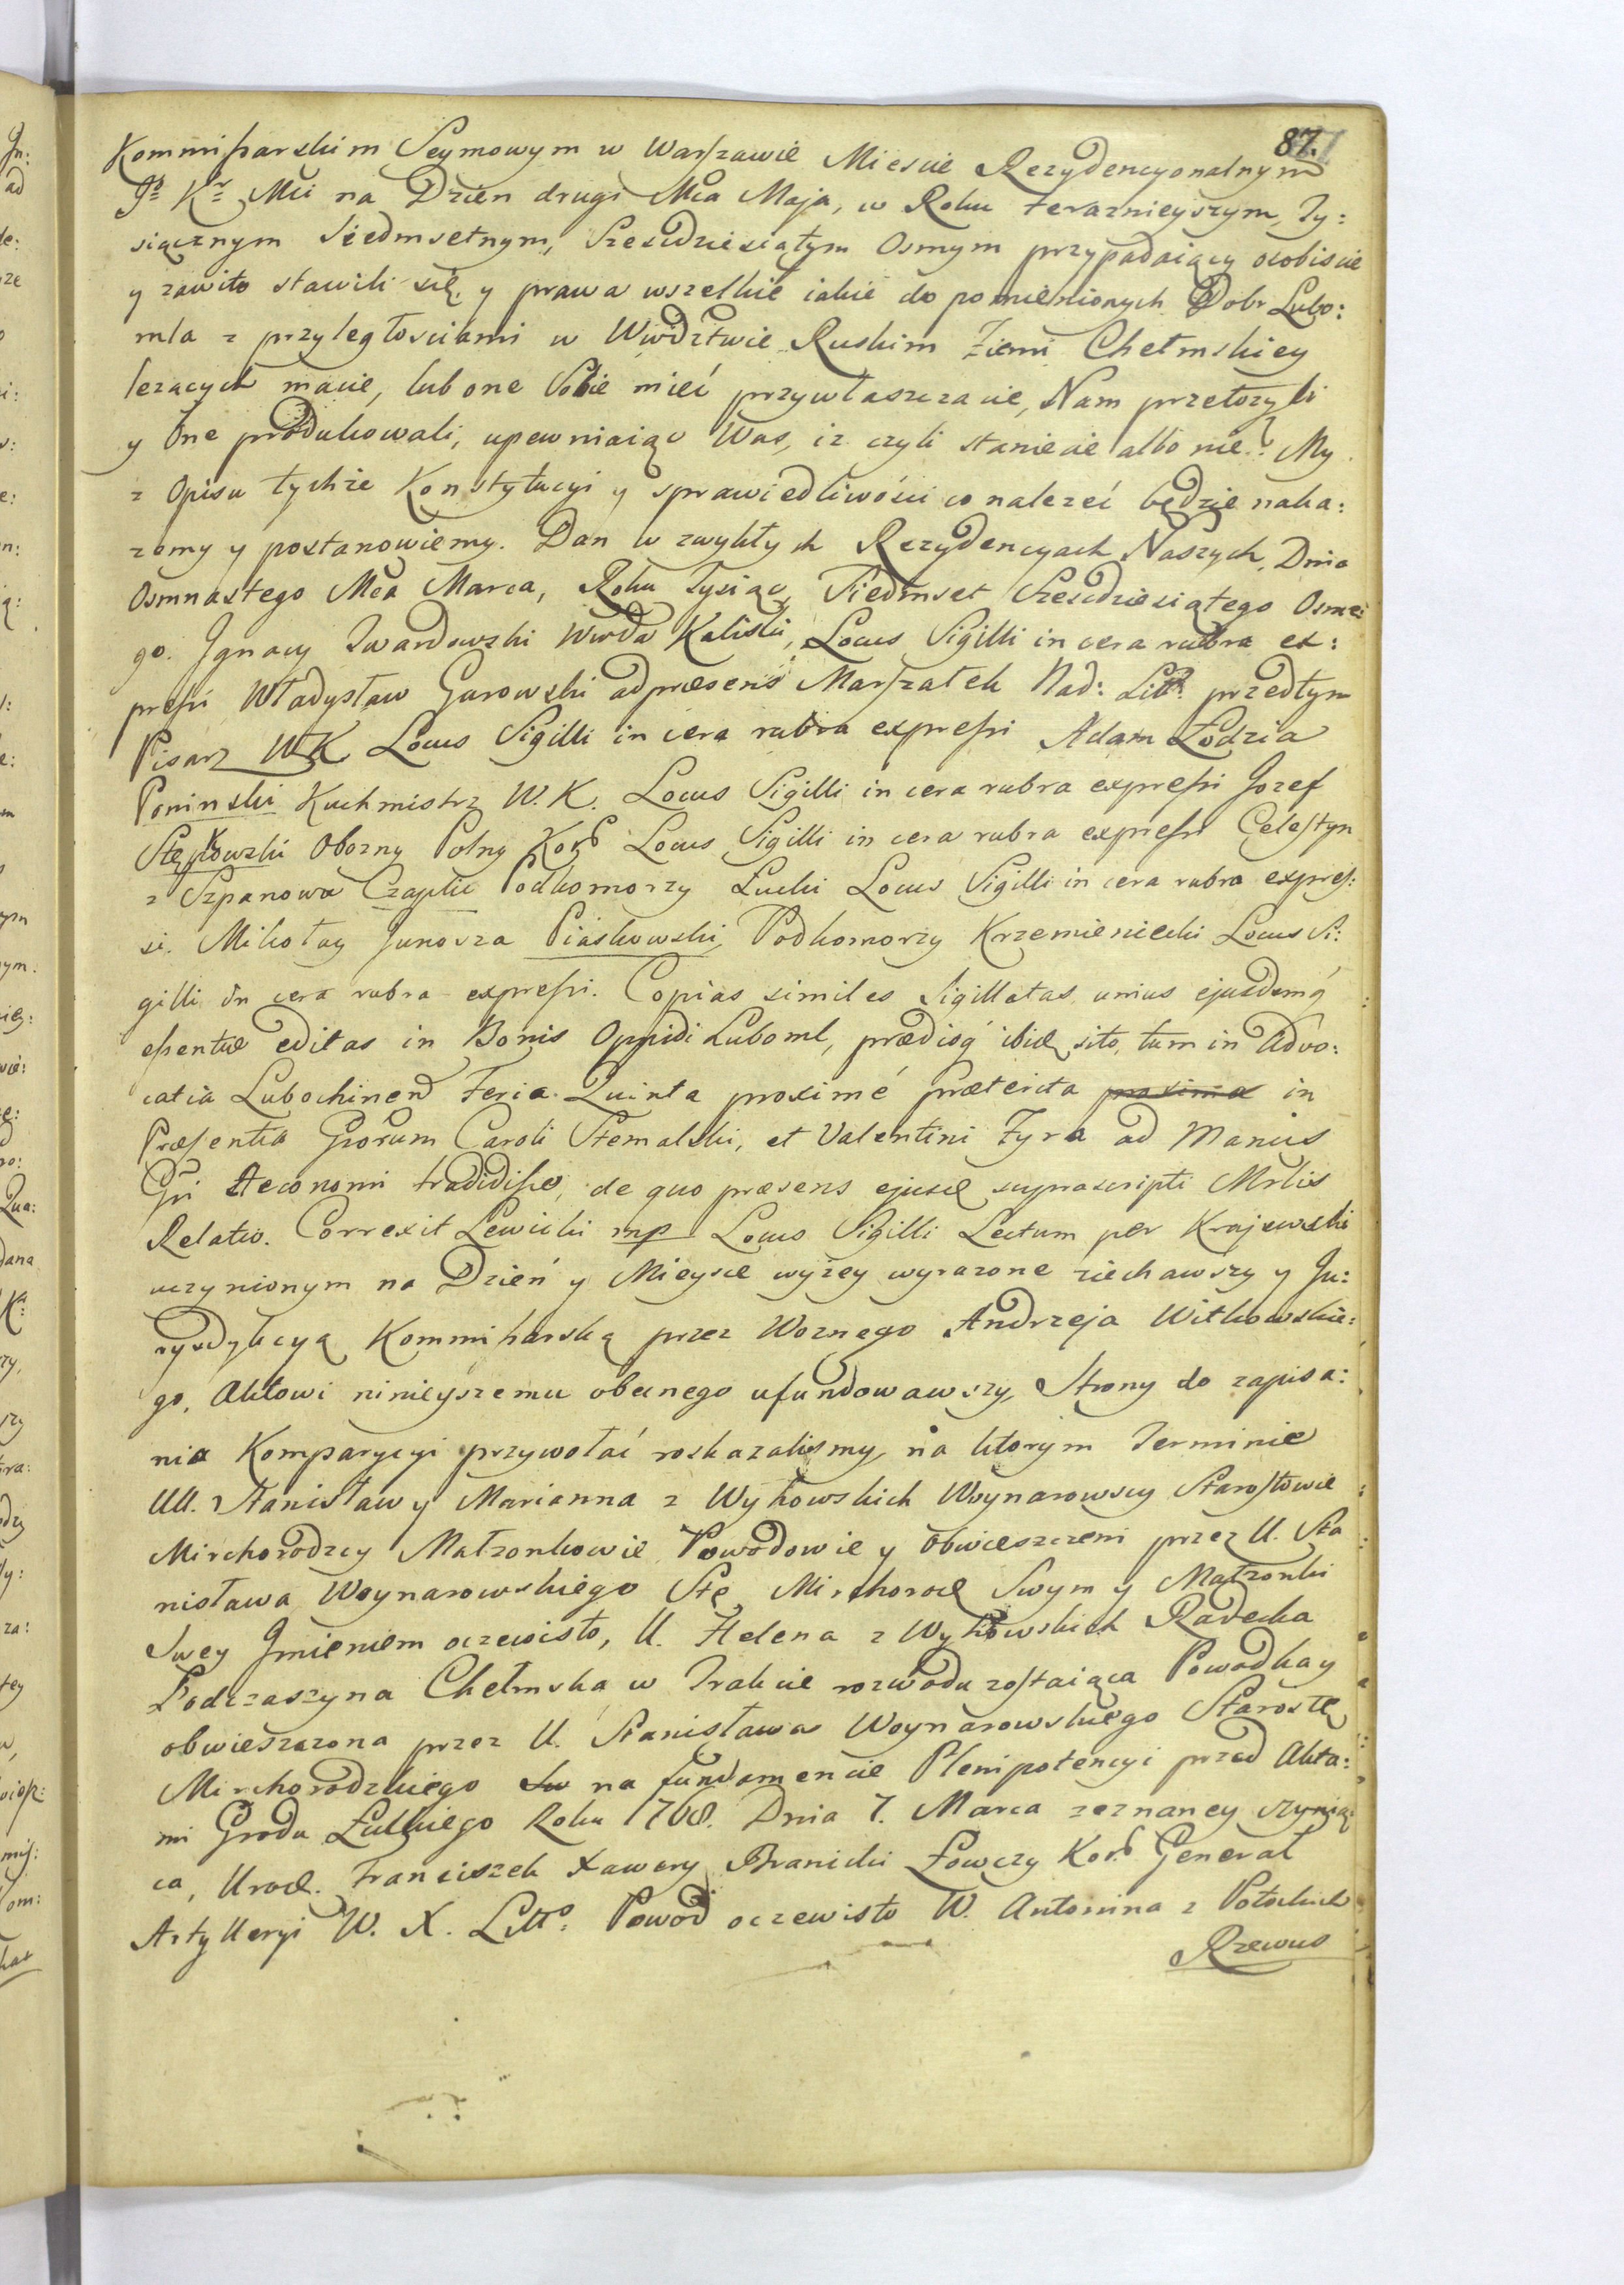 87.
Kommissarskim Seymowym w Warszawie Miescie Rezydencyonalnym
Js Kr Mci na Dzien drugi Mca Maja, w Roku terazniejszym, Ty:
siącznym Siedmsetnym, Szescdziesiątym Osmym przypadaiący osobiscie
y zawito stawili się, y prawa wszelkie iakie do pomienionych Dobr Lubo:
mla z przyległosciami w Wwdztwie Ruskim Ziemi Chełmskiey
lezacych macie, lub one Sobie mieć przywłaszczacie, Nam przełozyli
y One produkowali, upewniaiąc Was, iz czyli staniecie albo nie. My
z Opisu tychże Konstytucyi y sprawiedliwości co nalezeć będzie naka:
zemy y postanowiemy. Dan w zwykłych Rezydencyach Naszych, Dnia
Osmnastego Mca Marca, Roku Tysiąc, Siedmset Szescdziesiątego Osme:
go. Jgnacy Twardowski Wwda Kaliski, Locus Sigilli in cera rubra ex:
pressi Władysław Gurowski ad præsens Marszałek Nad: Litt: przedtym
Pisarz W.K. Locus Sigilli in cera rubra expressi Adam Łodzia
Poninski Kuchmistrz W. K. Locus Sigilli in cera rubra expressi Jozef
Stępkowski Obozny Polny Kor. Locus Sigilli in cera rubra expressi Celestyn
z Szpanowa Czaplic Podkomorzy Łucki Locus Sigilli in cera rubra expres:
si. Mikołay Junosza Piaskowski, Podkomorzy Krzemieniecki Locus Si:
gilli in cera rubra expressi. Copias similes Sigillatas unius ejusdemq́
essentiæ editas in Bonis Oppidi Luboml, prædiisq́ ibid. sito, tum in Advo:
catia Lubochinen Feria Quinta proximé præterita proxima in
Præsentia Grorum Caroli Stemalski, et Valentini Zyra ad Manus
Gri Æconomi tradidisse, de quo præsens ejusd. suprascripti Mrlis
Relatio. Correxit Lewicki mp Locus Sigilli Lectum per Krajewski
uczynionym na Dzień y Mieysce wyżey wyrazone ziechawszy y Ju:
rysdykcyą Kommissarską przez Woznego Andrzeja Witkowskie:
go, Aktowi ninieyszemu obecnego ufundowawszy, Strony do zapisa:
nia Komparycyi przywołać roskazalismy, na ktorym Terminie
UU. Stanisław y Marianna z Wyhowskich Woynarowscy Starostowie
Mirchorodzcy Małzonkowie Powodowie y obwieszczeni przez U. Sta
nisława Woynarowskiego Stę Mirchorod. Swym y Małzonki
Swey Jmieniem oczewisto, U. Helena z Wyhowskich Radecka
Podczaszyna Chełmska w Trakcie rozwodu zostaiąca Powodka y
obwieszczona przez U. Stanisława Woynarowskiego Starostę
Mirchorodzkiego na fundamencie Plenipotencyi przed Akta:
mi Grodu Łuckiego Roku 1768. Dnia 7. Marca zeznaney czynią:
ca, Urod. Franciszek Xawery Branicki Łowczy Kor. Generał
Artylleryi W. X. Litto. Powod oczewisto W. Antonina z Potockich
Rzewus